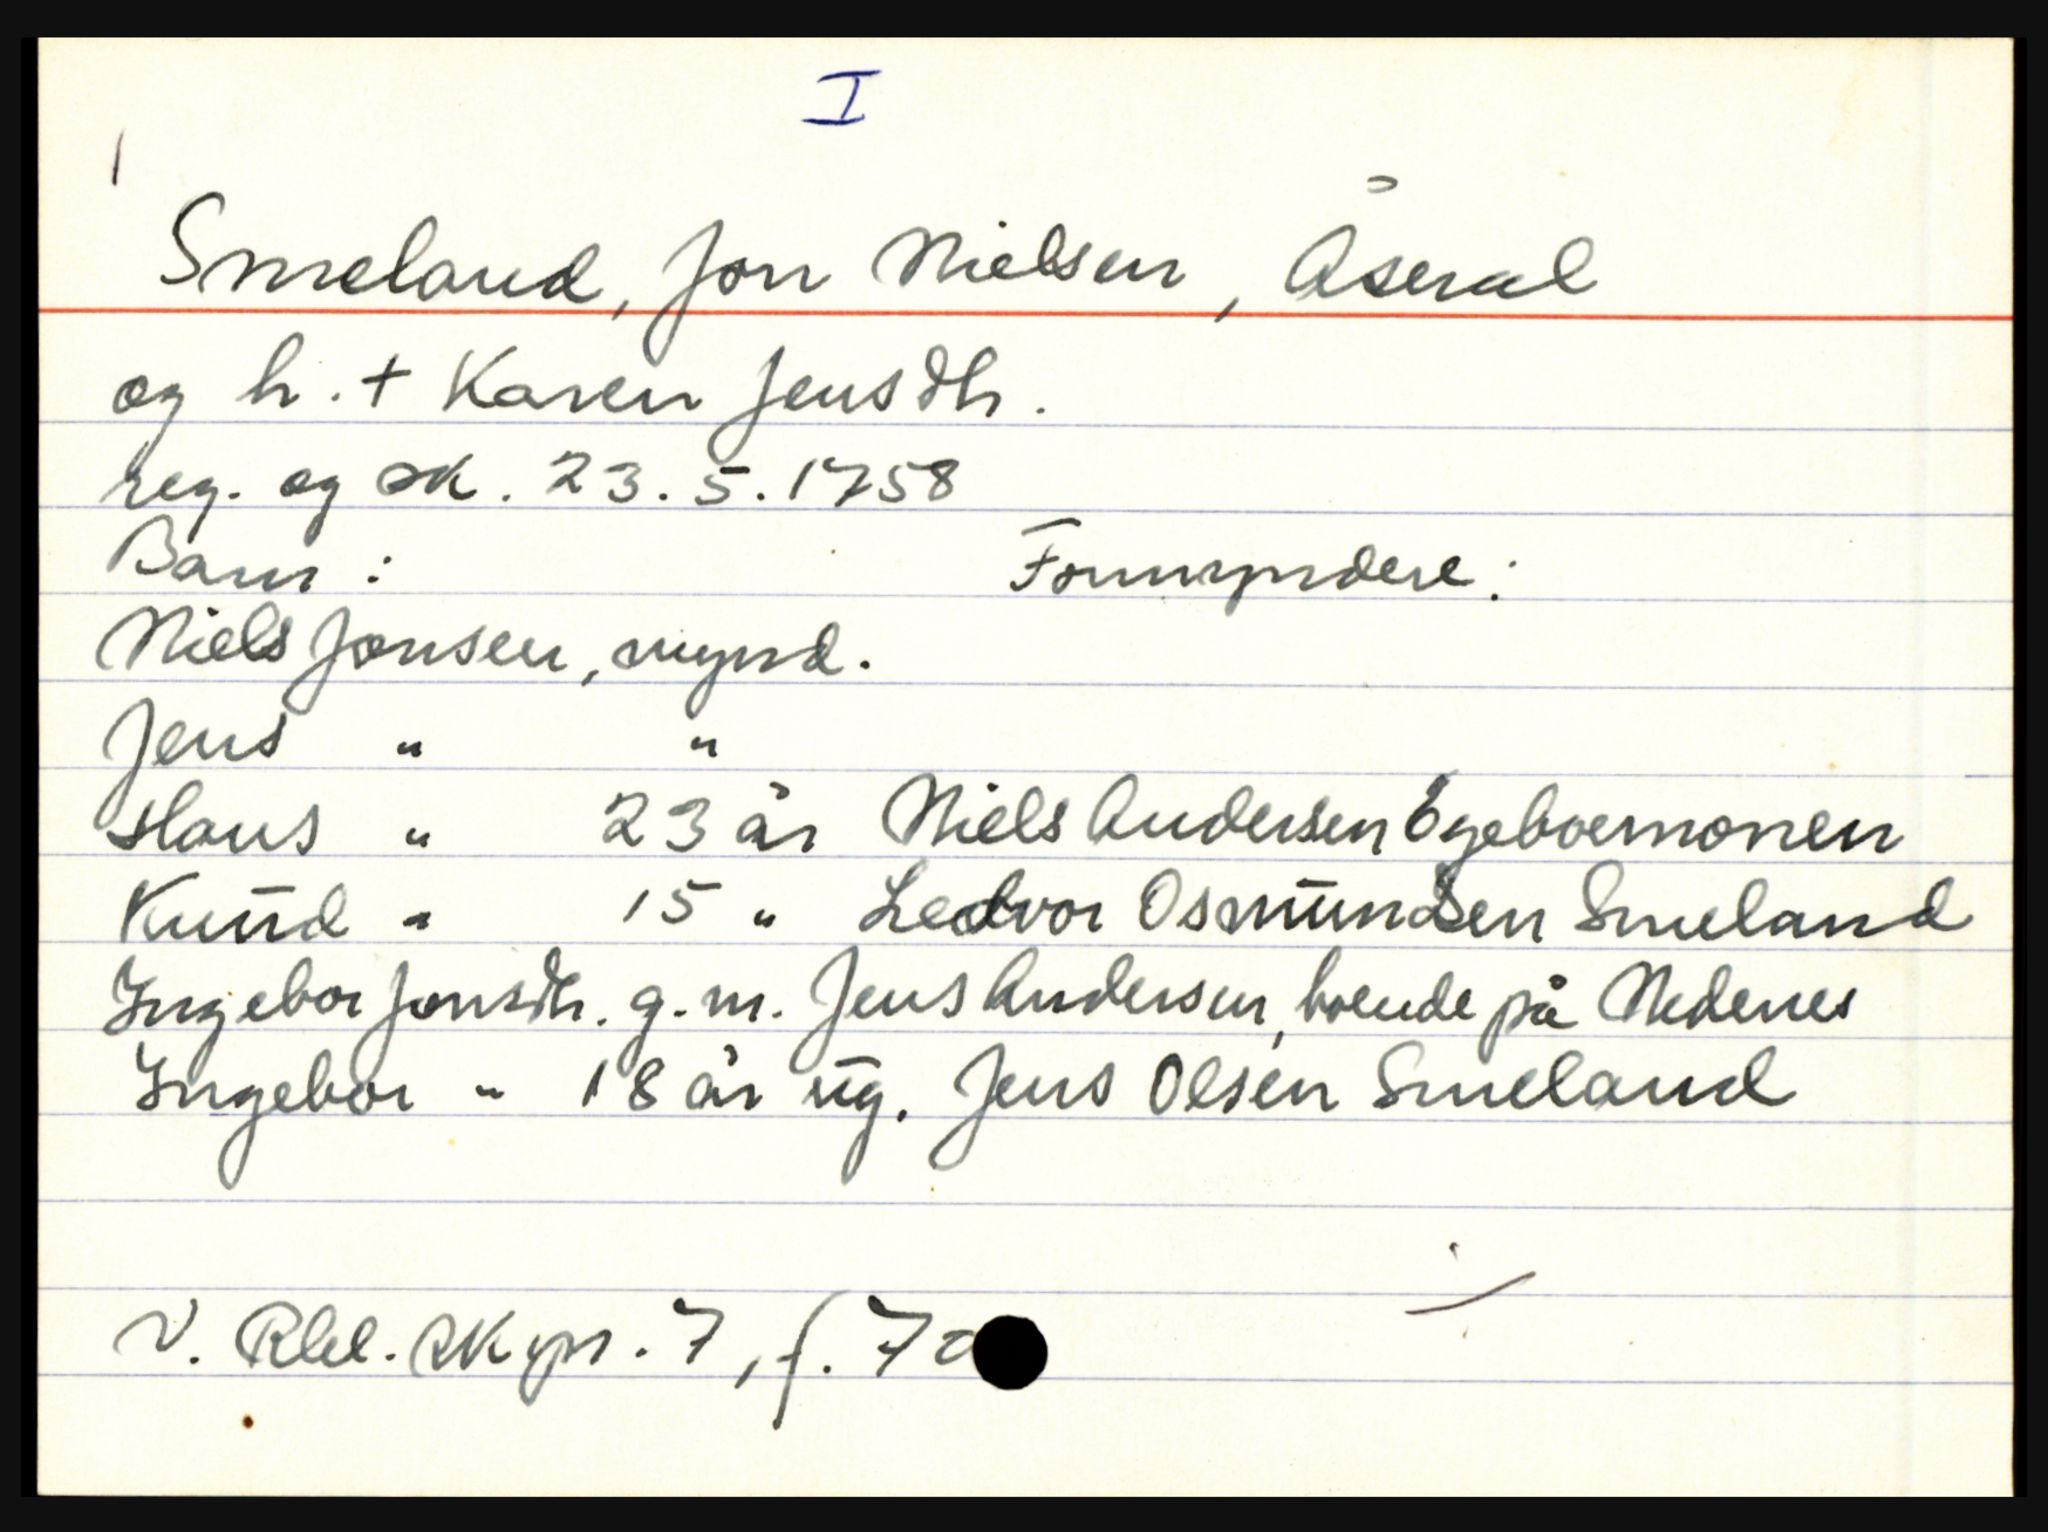 I
Smeland, Jon Nielsen, Åseral
og h. + Karen Jensdtr.
reg. og sk. 23.5.1758
Barn: Formyndere:
Niels Jonsen, mynd.
Jens " "
Hans " 23 år Niels Andersen Egeboemonen
Knud " 15 " Ledvor Osmundsen Smeland
Ingebor Jonsdtr. g.m. Jens Andersen, boende på Nedenes
Ingebor " 18 år ug. Jens Olsen Smeland
V. Rbl. skpr. 7, f. 7a